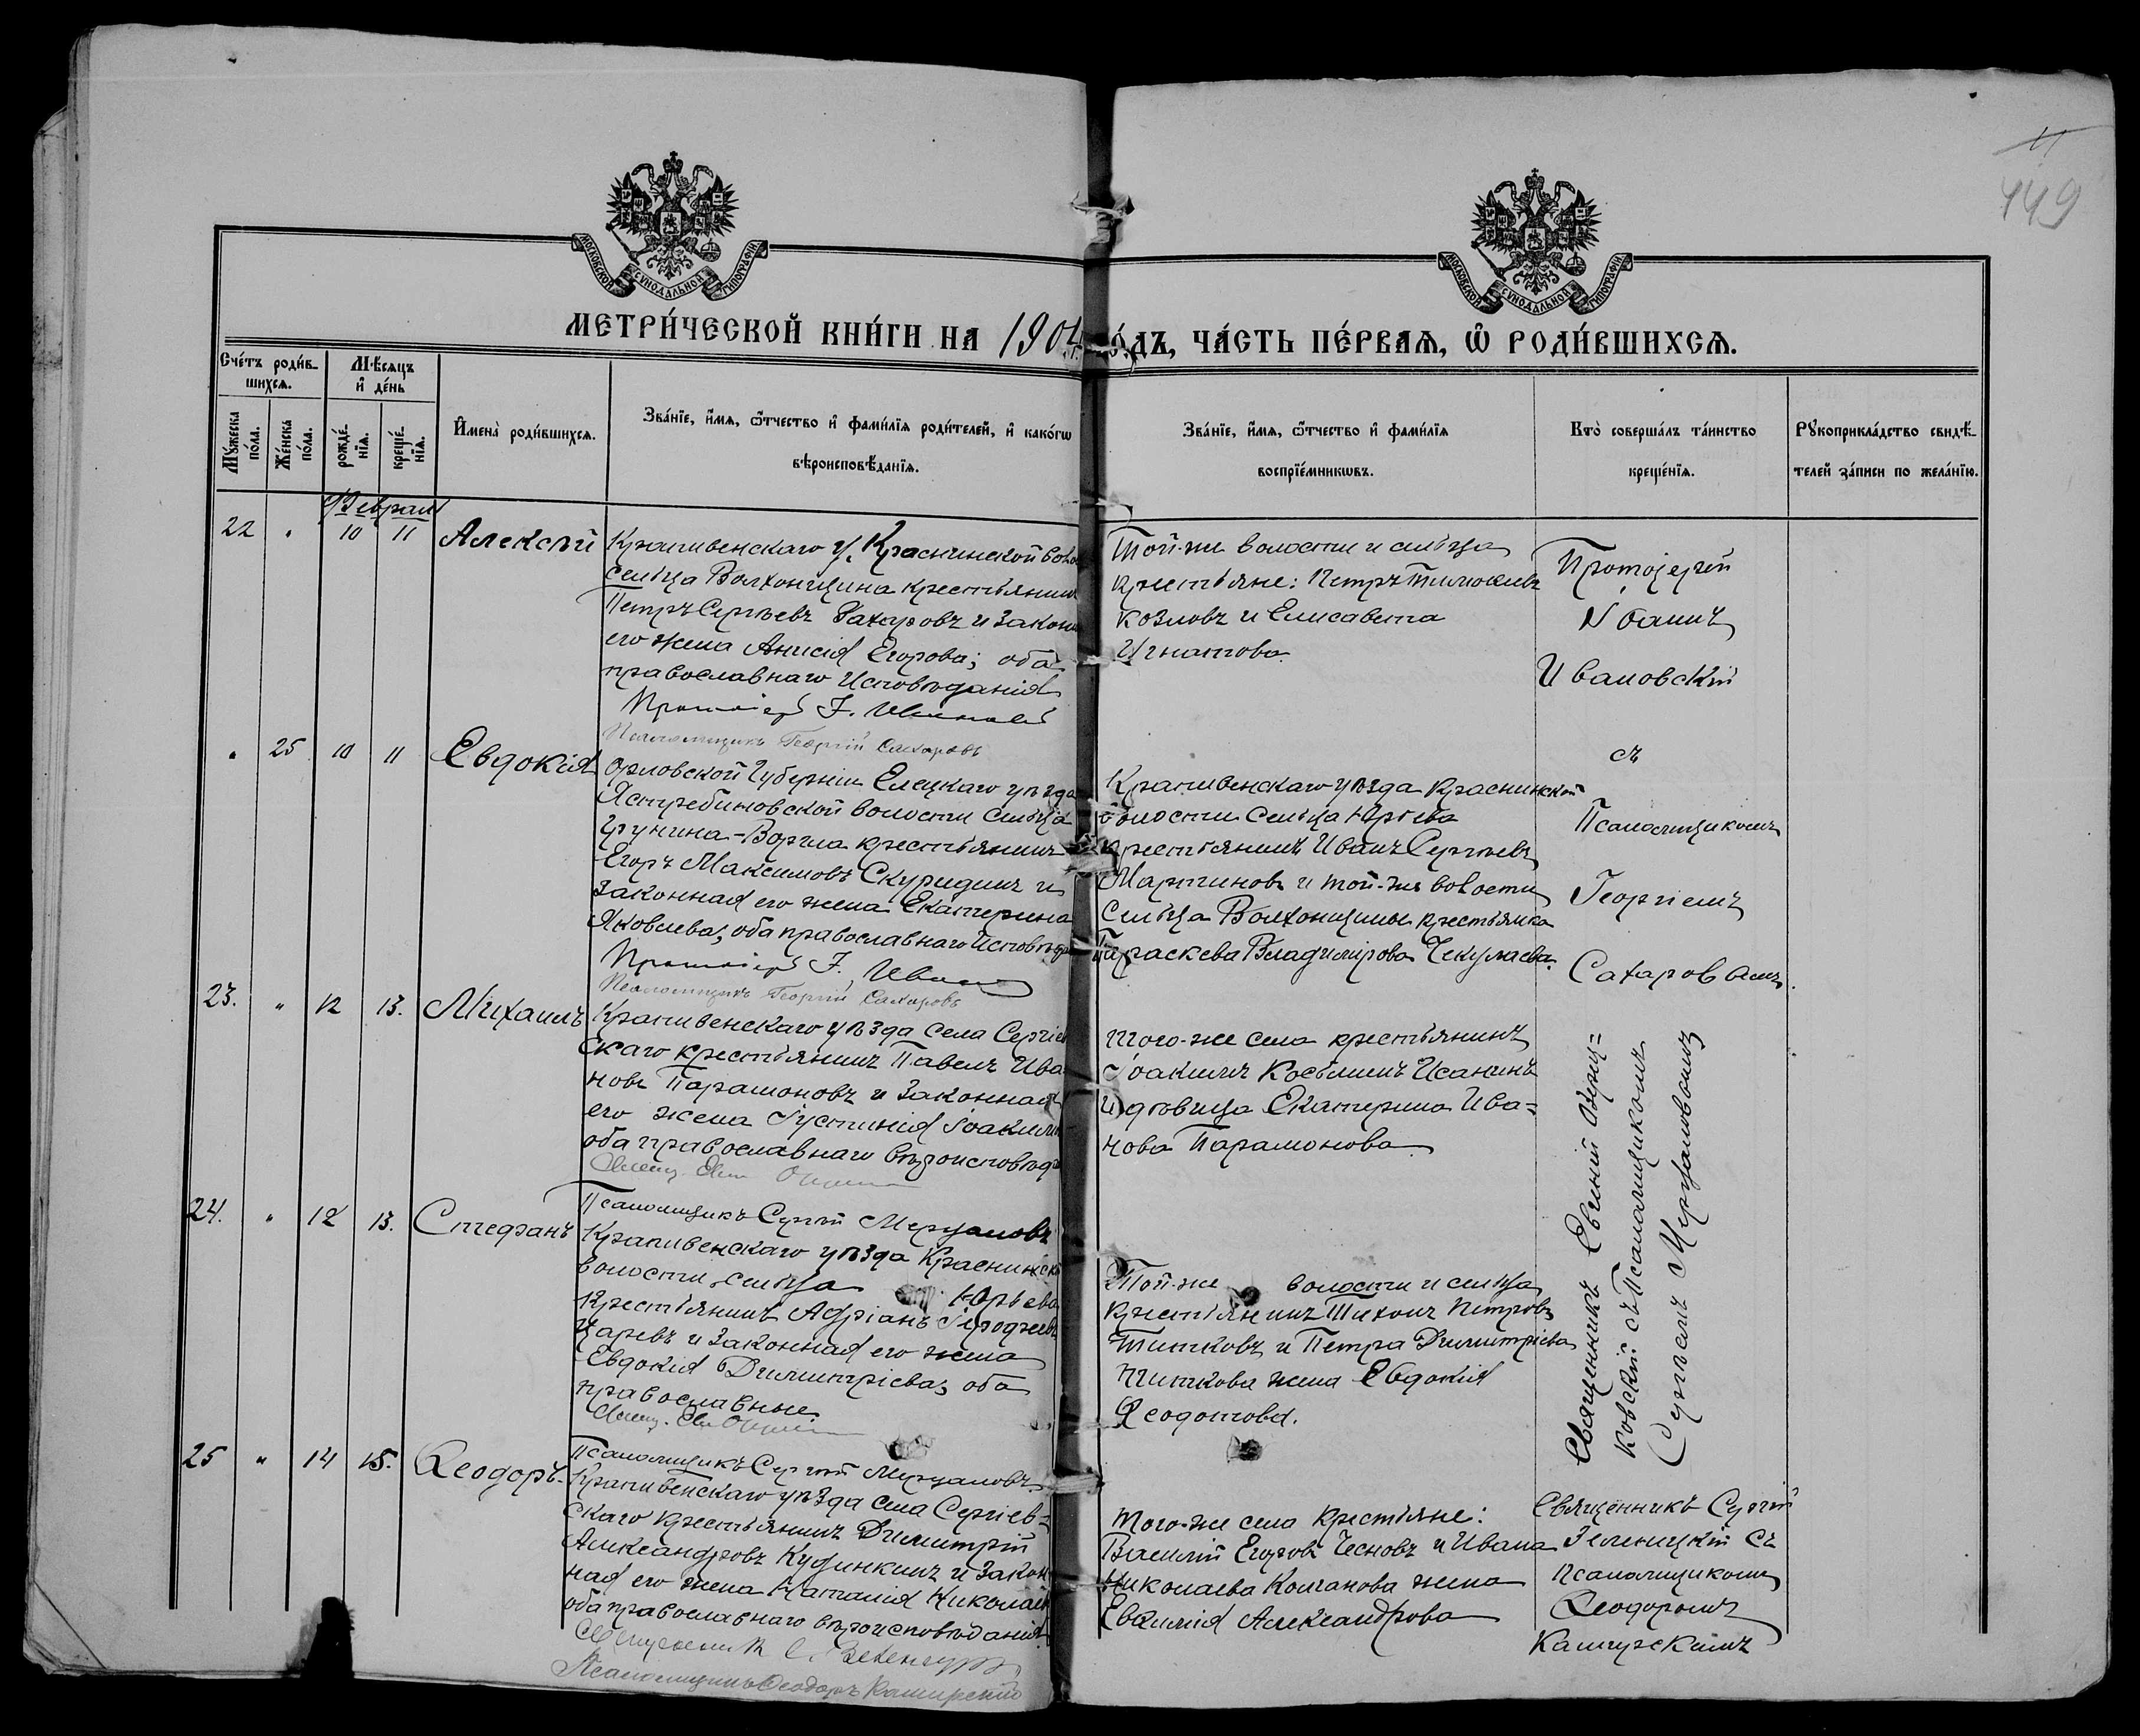 11
449
МОСКОВСКОЙ СѴНОДАЛЬНОЙ ТИПОГРАФІИ
МОСКОВСКОЙ СѴНОДАЛЬНОЙ ТИПОГРАФІИ
МЕТРИ́ЧЕСКОЙ КНИ́ГИ НА 1904 го́дъ, ЧА́СТЬ ПЕ́РВАѦ, Ѽ РОДИ́ВШИХСѦ.
Сче́тъ роди́в-
шихсѧ.
Мѣ́сѧцъ
и҆ де́нь
Мꙋ́жеска
по́ла.
Же́нска
по́ла.
рожде́-
нїѧ.
креще́-
нїѧ.
И҆мена̀ роди́вшихсѧ.
Зва́нїе, и҆́мѧ, ѻ҆́тчество и҆ фами́лїѧ роди́телей, и҆ како́гѡ
вѣроисповѣ́данїѧ.
Зва́нїе, и҆́мѧ, ѻ҆́тчество и҆ фами́лїѧ
воспрїе́мникѡвъ.
Кто̀ соверша́лъ та́инство
креще́нїѧ.
Рꙋкоприкла́дство свидѣ́-
телей за́писи по жела́нїю.
Февраль
22 " 10 11 Алексѣй
Крапивенскаго у. Краснинской воло
сельца Волхонщина крестьянинъ
Петръ Сергѣевъ Захаровъ и закон
его жена Анисія Егорова; оба
православнаго исповѣданія
Псаломщикъ Георгій Сахаровъ
Той-же волости и сельца
крестьяне: Петръ Тимоѳеевъ
Козловъ и Елисавета
Игнатова.
Протоіерей
Іоаннъ
Ивановскій
съ
Псаломщикомъ
Георгіемъ
Сахаровымъ.
" 25 10 11 Евдокія
Орловской губерніи Елецкаго уѣзда
Ястребиновской волости сельца
Грунина-Воргла крестьянинъ
Егоръ Максимовъ Скуридинъ и
законная его жена Екатерина
Яковлева, оба православнаго исповѣд
Псаломщикъ Георгій Сахаровъ
Крапивенскаго уѣзда Краснинской
волости сельца Юрьева
крестьянинъ Иванъ Сергѣевъ
Мартиновъ и той-же волости
сельца Волхонщины крестьянка
Параскева Владимірова Чекулаева.
23. " 12 13. Михаилъ
Крапивенскаго уѣзда села Сергіев
скаго крестьянинъ Павелъ Ива
новъ Парамоновъ и законная
его жена Іустинія Іоаким
оба православнаго вѣроисповѣд
Псаломщикъ Сергій Мерцаловъ
Того-же села крестьянинъ
Іоакимъ Косьминъ Исанинъ
и дѣвица Екатерина Ива=
нова Парамонова
Священникъ Евгеній Одоец=
ковскій съ Псаломщикомъ
Сергѣемъ Мерцаловымъ
24. " 12 13. Стефанъ
Крапивенскаго уѣзда Краснинск
волости, сельца Юрьева
крестьянинъ Адріанъ
Царевъ и законная его жена
Евдокія Димитріева, оба
православные.
Псаломщикъ Сергій Мерцаловъ
Той-же волости и сельца
крестьянинъ Тихонъ Петровъ
Титковъ и Петра Димитріева
Титкова жена Евдокія
Ѳеодотова.
25 " 14 15. Ѳеодоръ.
Крапивенскаго уѣзда села Сергіев=
скаго крестьянинъ Димитрій
Александровъ Кудинкинъ и закон
ная его жена Наталія Николаев
оба православнаго вѣроисповѣданія
Псаломщикъ Ѳеодоръ Каширскій
Того-же села крестьяне:
Василій Егоровъ Чесновъ и Ивана
Николаева Колганова жена
Евѳимія Александрова
Священникъ Сергій
Зеленецкій съ
псаломщикомъ
Ѳеодоромъ
Каширскимъ